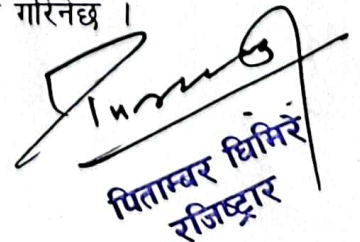 गरिनेछ ।
पिताम्बर घिमिरे
रजिष्ट्रार